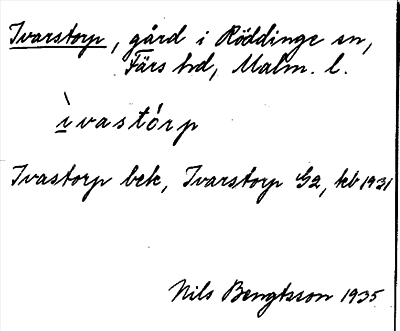 Ivarstorp, gård i Röddinge sn,
Färs hd, Malm. l.
ìvastórp
Ivastorp bek, Ivarstorp G2, kb 1931
Nils Bengtsson 1935